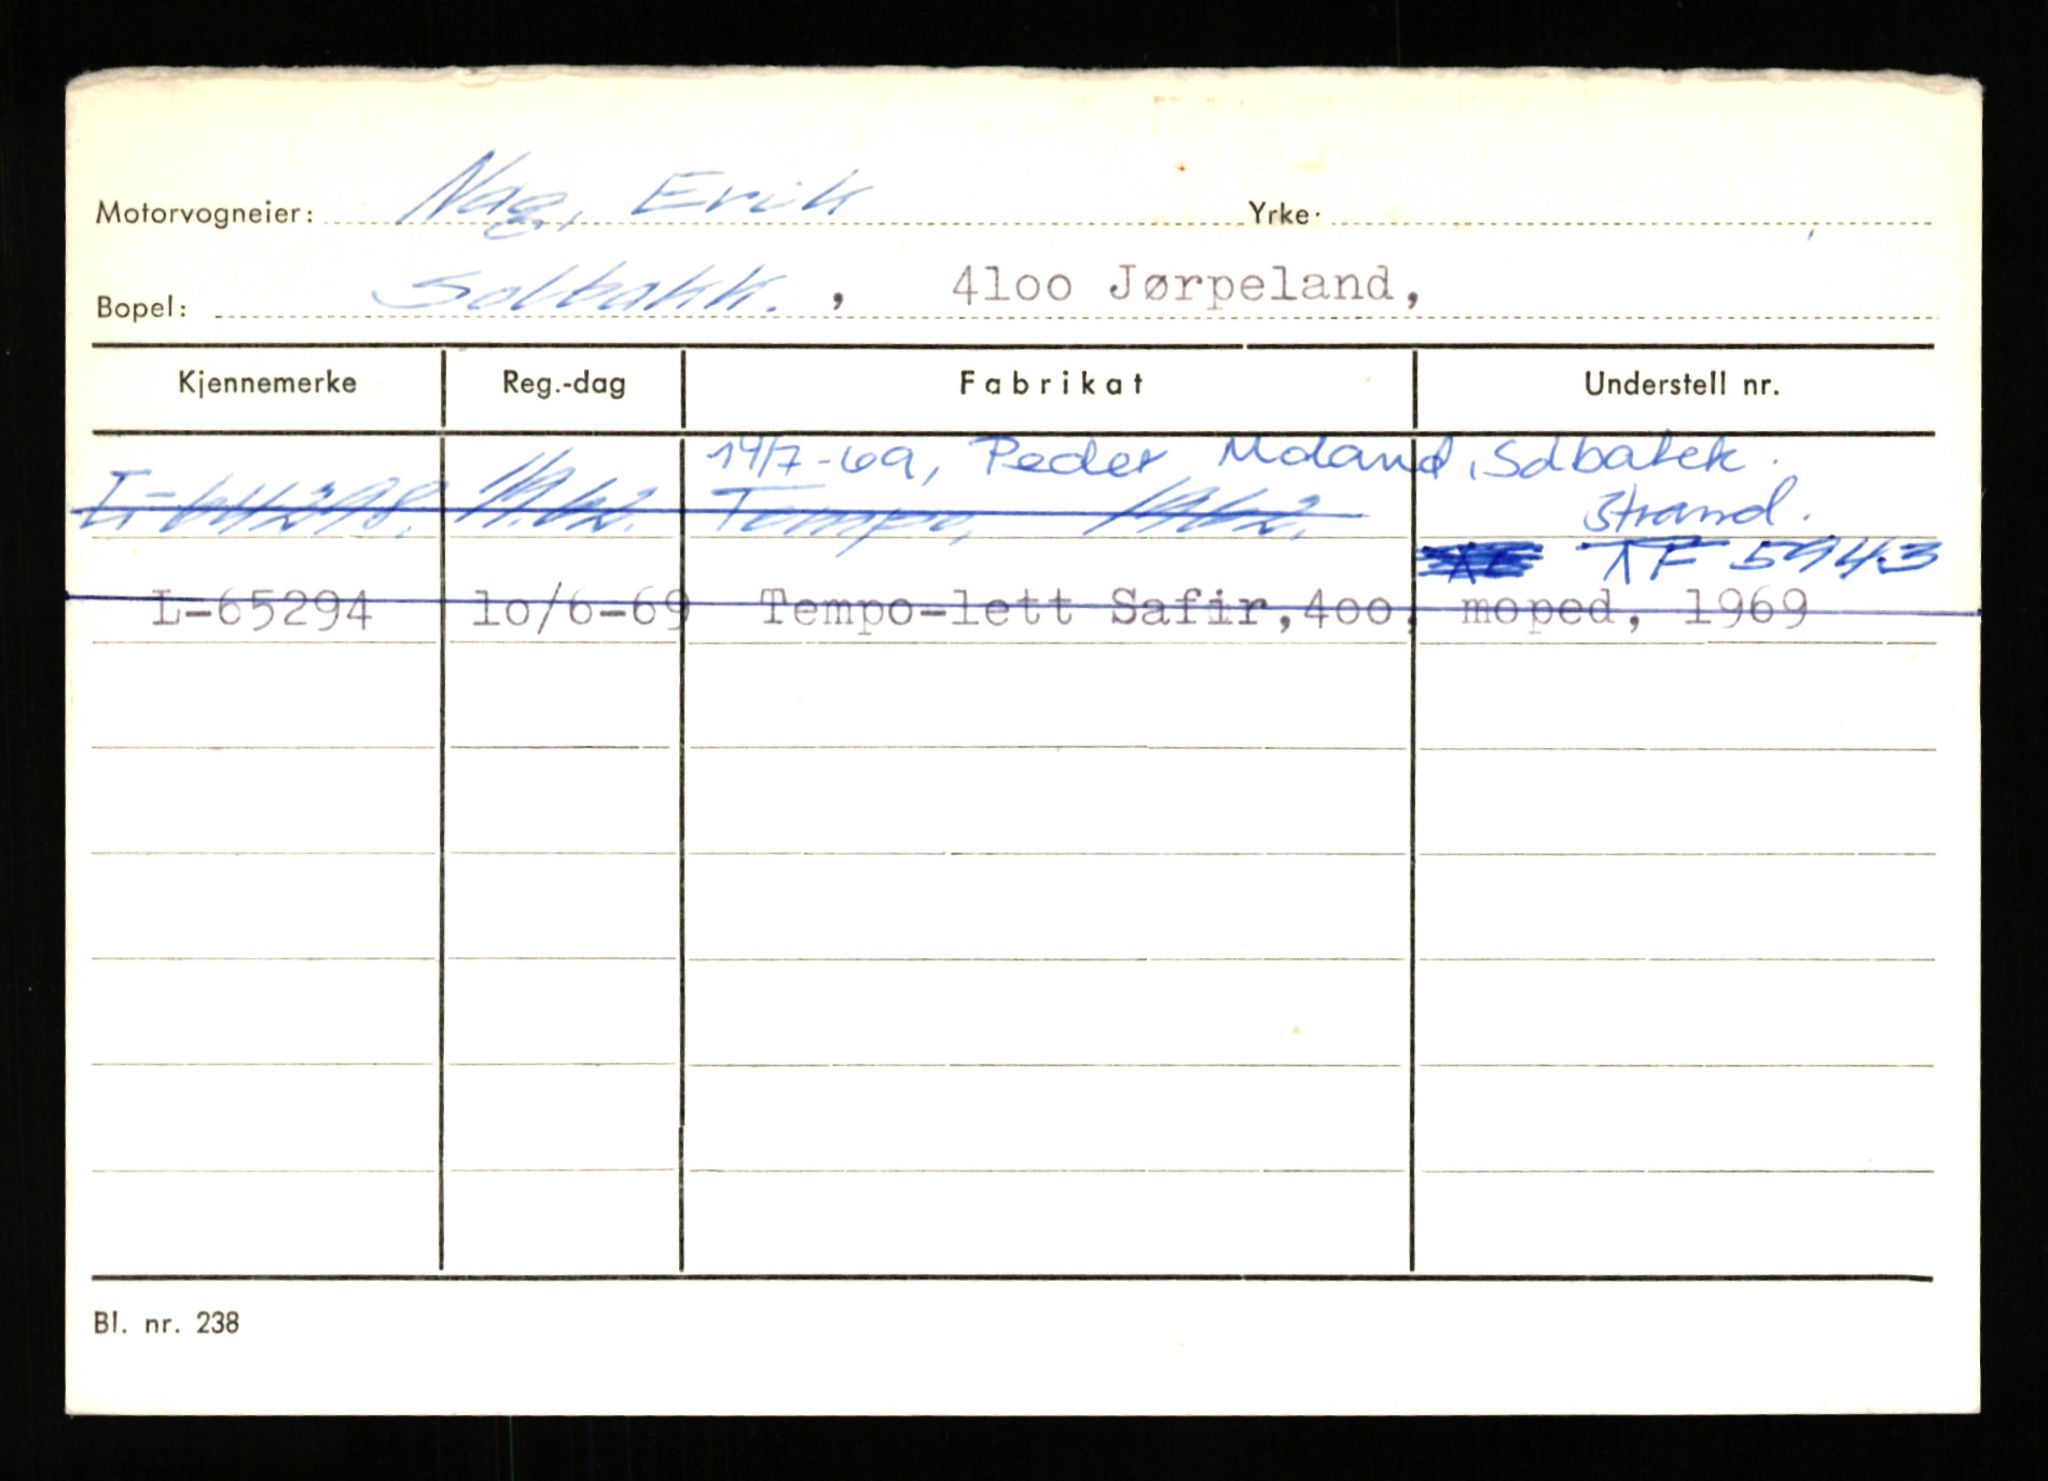 Motorvogneier: Nag, Erik Yrke:
Bopel: Solbakk. , 4100 Jørpeland,
Kjennemerke Reg.-dag Fabrikat Understell nr.
14/7-69, Peder Moland, Solbakk.
L-64298. 1/9.62. Tempo, 1962. Strand.
TF 5943
L-65294 10/6-69 Tempo-lett Safir,400, moped, 1969
Bl. nr. 238